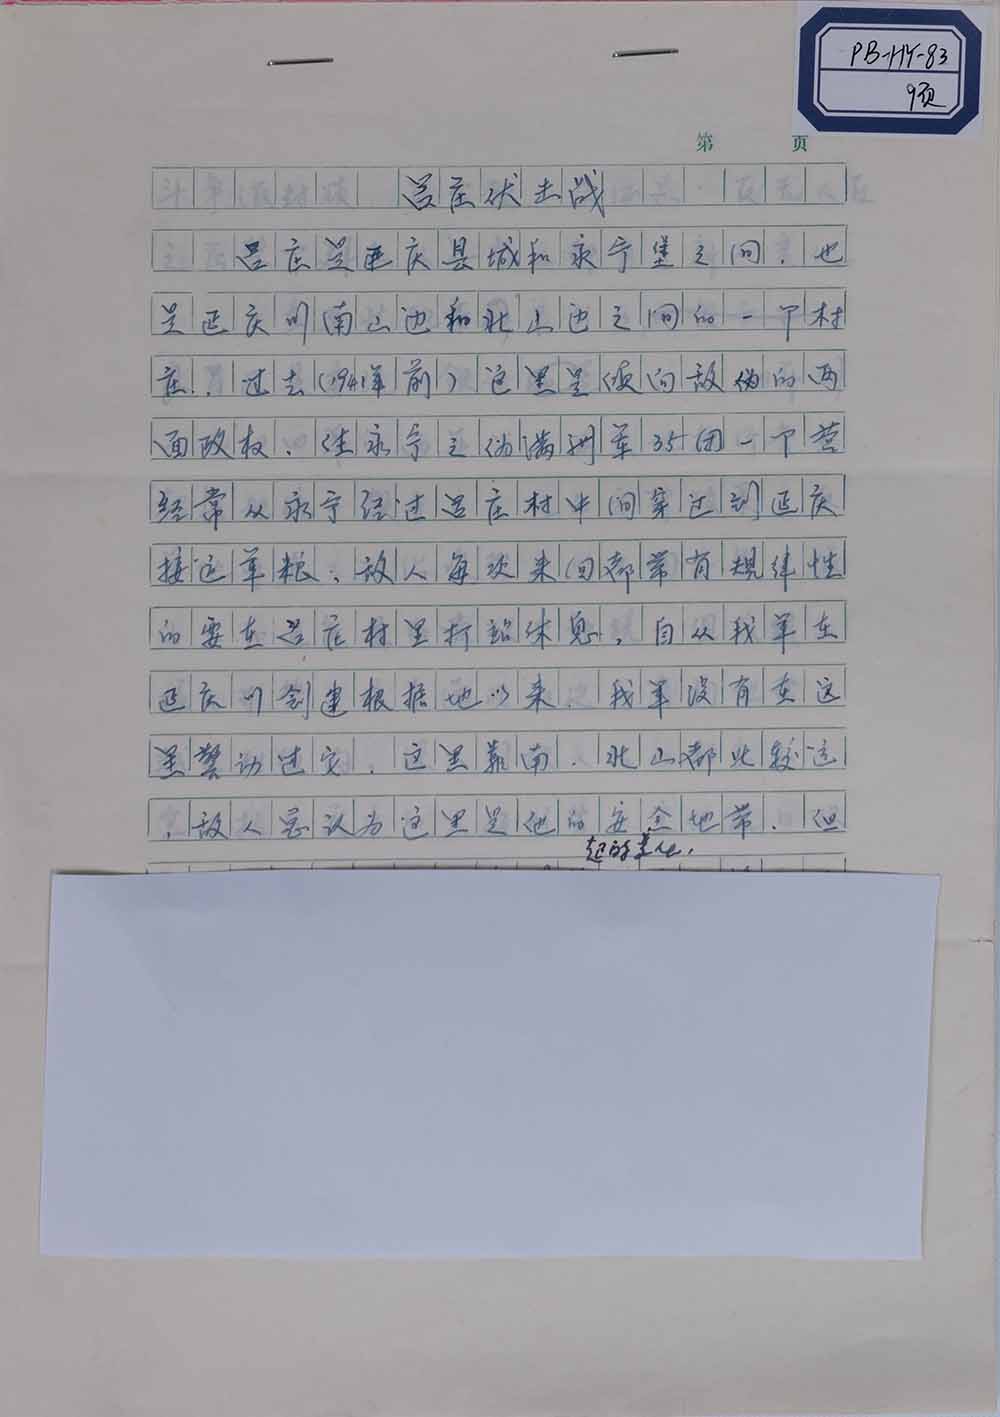 PB-HY-83
9页
第 页
吕庄伏击战
吕庄是延庆县城和永宁堡之间，也
是延庆川南山边和北山边之间的一个村
庄，过去（1941年前）这里是倾向敌伪的两
面政权，住永宁之伪满洲军35团一个营
经常从永宁经过吕庄村中间穿过到延庆
接运军粮，敌人每次来回都带有规律性
的要在吕庄村里打踮休息，自从我军在
延庆川创建根据地以来，我军没有在这
里警动过它，这里靠南、北山都比较远
，敌人总认为这里是他的安全地带，但
起的变化，